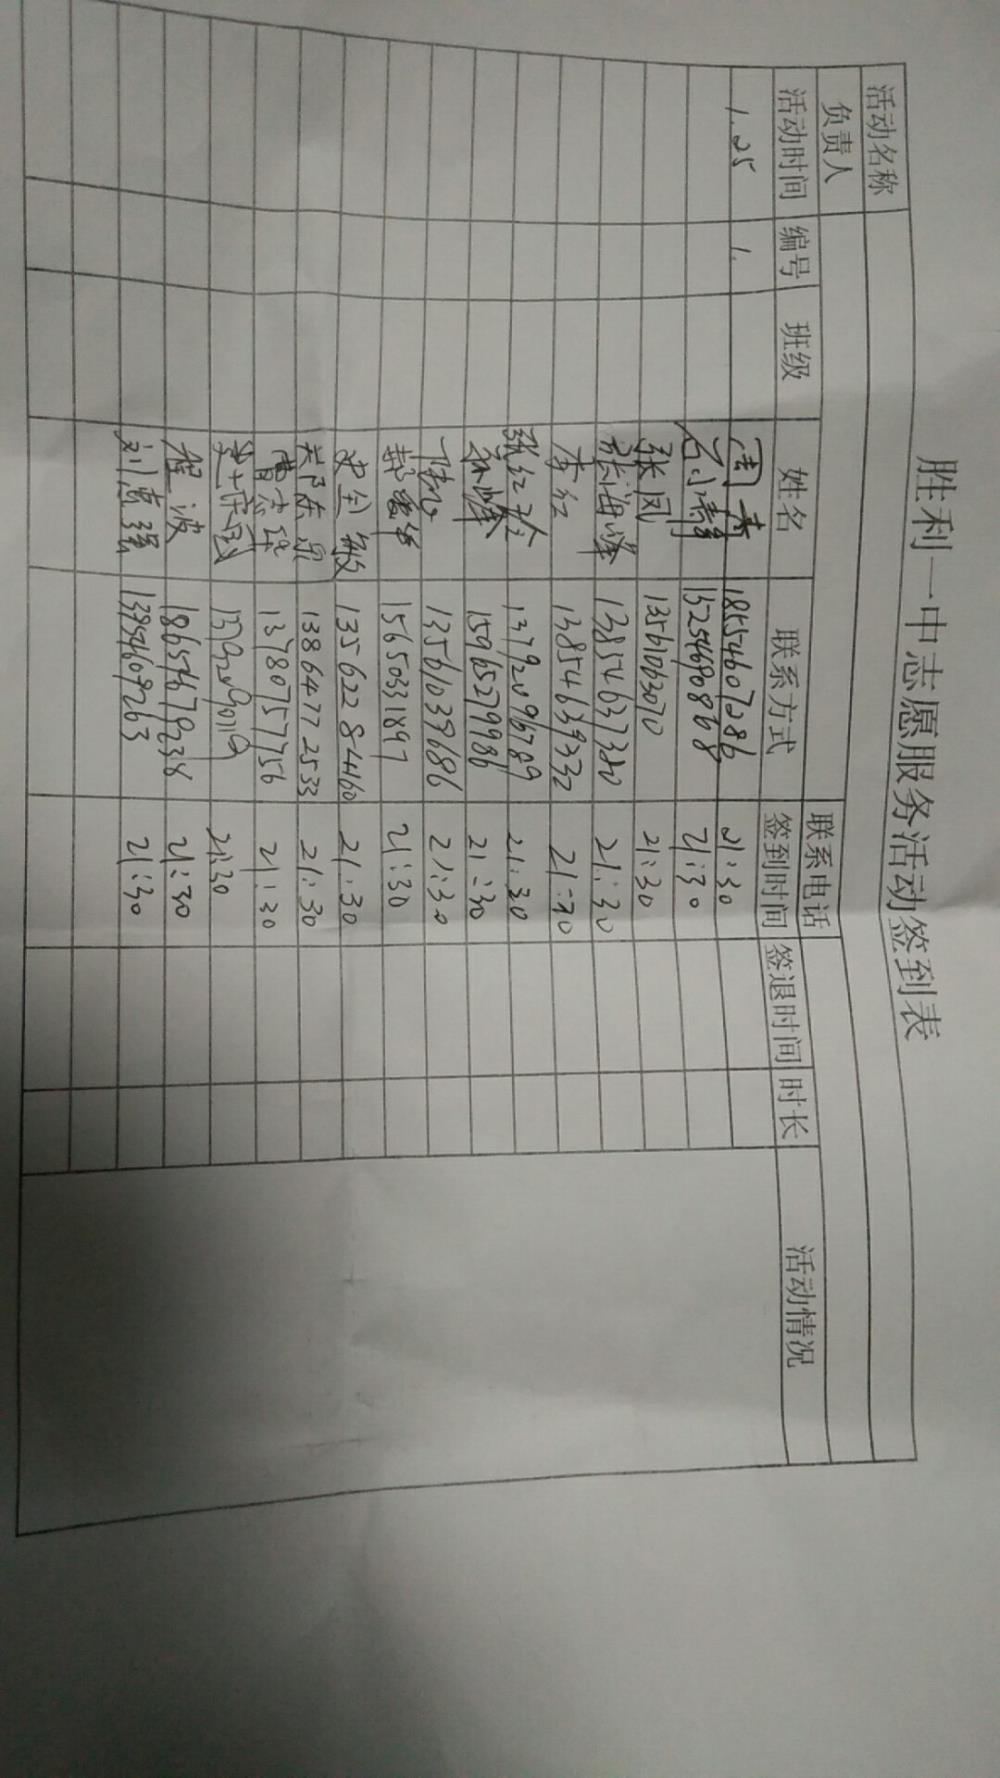 胜利一中志愿服务活动签到表
活动名称
负责人 联系电话
活动时间 编号 班级 姓名 联系方式 签到时间 签退时间 时长 活动情况
1.25 1. 周青 18554607286 21:30
15254690868 21:30
张凤 13561063070 21:30
张海峰 13854637380 21:30
李红 13854639332 21:30
张红玲 13792096789 21:30
孙峰 15965279986 21:30
13561039686 21:30
15650331897 21:30
史全敏 13562284460 21:30
13864772533 21:30
曹杰 13780757756 21:30
21:30
程波 18654679238 21:30
刘惠强 13954609263 21:30